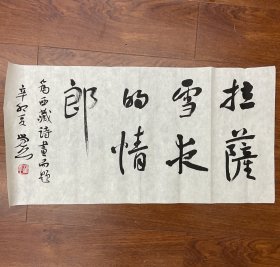 拉薩
雪夜
的情
郎
為西藏詩畫而題
辛卯夏